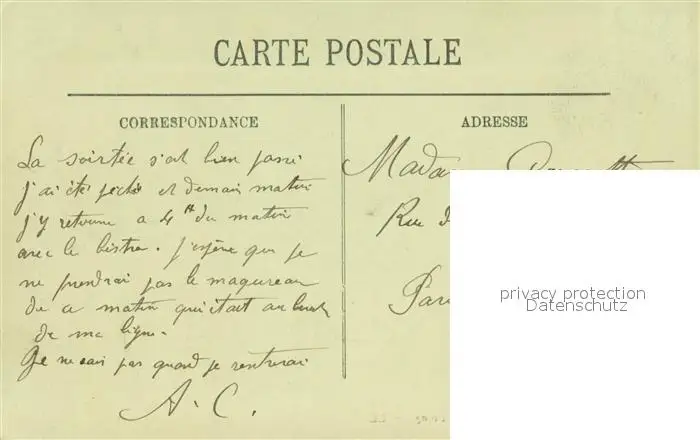 CARTE POSTALE
CORRESPONDANCE
ADRESSE
La soirée s'est bien passé
j'ai été pêché et demain matin
j'y retourne a 4 H du matin
avec le . j'espère que je
ne perdrai pas le maquereau
de ce matin qui était au bout
de ma ligne.
Je ne sais pas quand je rentrerai
A. C.
Mada
Rue d
Par
privacy protection
Datenschutz